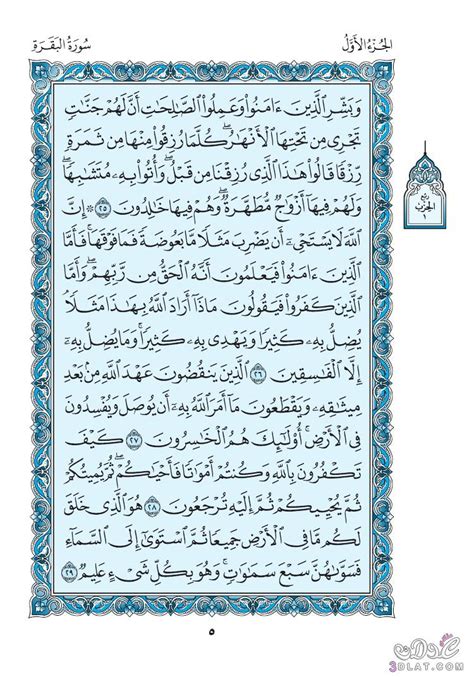 الجُزْءُ الأَوَّلُ
سُورَةُ البَقَرَةِ
وَبَشِّرِ ٱلَّذِينَ ءَامَنُوا۟ وَعَمِلُوا۟ ٱلصَّـٰلِحَـٰتِ أَنَّ لَهُمْ جَنَّـٰتٍ
تَجْرِى مِن تَحْتِهَا ٱلْأَنْهَـٰرُ ۖ كُلَّمَا رُزِقُوا۟ مِنْهَا مِن ثَمَرَةٍ
رِّزْقًا ۙ قَالُوا۟ هَـٰذَا ٱلَّذِى رُزِقْنَا مِن قَبْلُ ۖ وَأُتُوا۟ بِهِۦ مُتَشَـٰبِهًا ۖ
وَلَهُمْ فِيهَآ أَزْوَٰجٌ مُّطَهَّرَةٌ ۖ وَهُمْ فِيهَا خَـٰلِدُونَ ٢٥ ۞ إِنَّ
ٱللَّهَ لَا يَسْتَحْىِۦٓ أَن يَضْرِبَ مَثَلًا مَّا بَعُوضَةً فَمَا فَوْقَهَا ۚ فَأَمَّا
ٱلَّذِينَ ءَامَنُوا۟ فَيَعْلَمُونَ أَنَّهُ ٱلْحَقُّ مِن رَّبِّهِمْ ۖ وَأَمَّا
ٱلَّذِينَ كَفَرُوا۟ فَيَقُولُونَ مَاذَآ أَرَادَ ٱللَّهُ بِهَـٰذَا مَثَلًا ۘ
يُضِلُّ بِهِۦ كَثِيرًا وَيَهْدِى بِهِۦ كَثِيرًا ۚ وَمَا يُضِلُّ بِهِۦٓ
إِلَّا ٱلْفَـٰسِقِينَ ٢٦ ٱلَّذِينَ يَنقُضُونَ عَهْدَ ٱللَّهِ مِنۢ بَعْدِ
مِيثَـٰقِهِۦ وَيَقْطَعُونَ مَآ أَمَرَ ٱللَّهُ بِهِۦٓ أَن يُوصَلَ وَيُفْسِدُونَ
فِى ٱلْأَرْضِ ۚ أُو۟لَـٰٓئِكَ هُمُ ٱلْخَـٰسِرُونَ ٢٧ كَيْفَ
تَكْفُرُونَ بِٱللَّهِ وَكُنتُمْ أَمْوَٰتًا فَأَحْيَـٰكُمْ ۖ ثُمَّ يُمِيتُكُمْ
ثُمَّ يُحْيِيكُمْ ثُمَّ إِلَيْهِ تُرْجَعُونَ ٢٨ هُوَ ٱلَّذِى خَلَقَ
لَكُم مَّا فِى ٱلْأَرْضِ جَمِيعًا ثُمَّ ٱسْتَوَىٰٓ إِلَى ٱلسَّمَآءِ
فَسَوَّىٰهُنَّ سَبْعَ سَمَـٰوَٰتٍ ۚ وَهُوَ بِكُلِّ شَىْءٍ عَلِيمٌ ٢٩
ربع
الحزب
١
٥
عدلات
3DLAT.COM